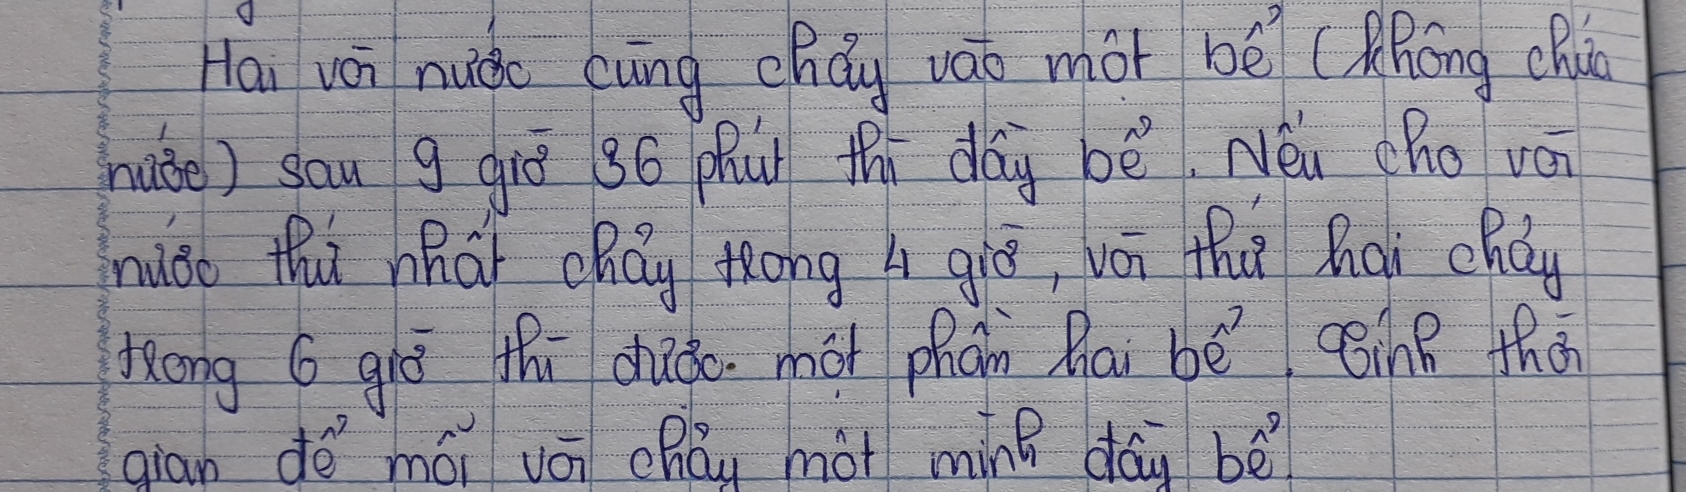 Hai vòi nước cùng chảy vào một bể (không chứa
nước) sau 9 giờ 36 phút thì đầy bể. Nếu cho vòi
nước thứ nhất chảy trong 4 giờ, vòi thứ hai chảy
trong 6 giờ thì được một phần hai bể. Tính thời
gian để mỗi vòi chảy một mình đầy bể.